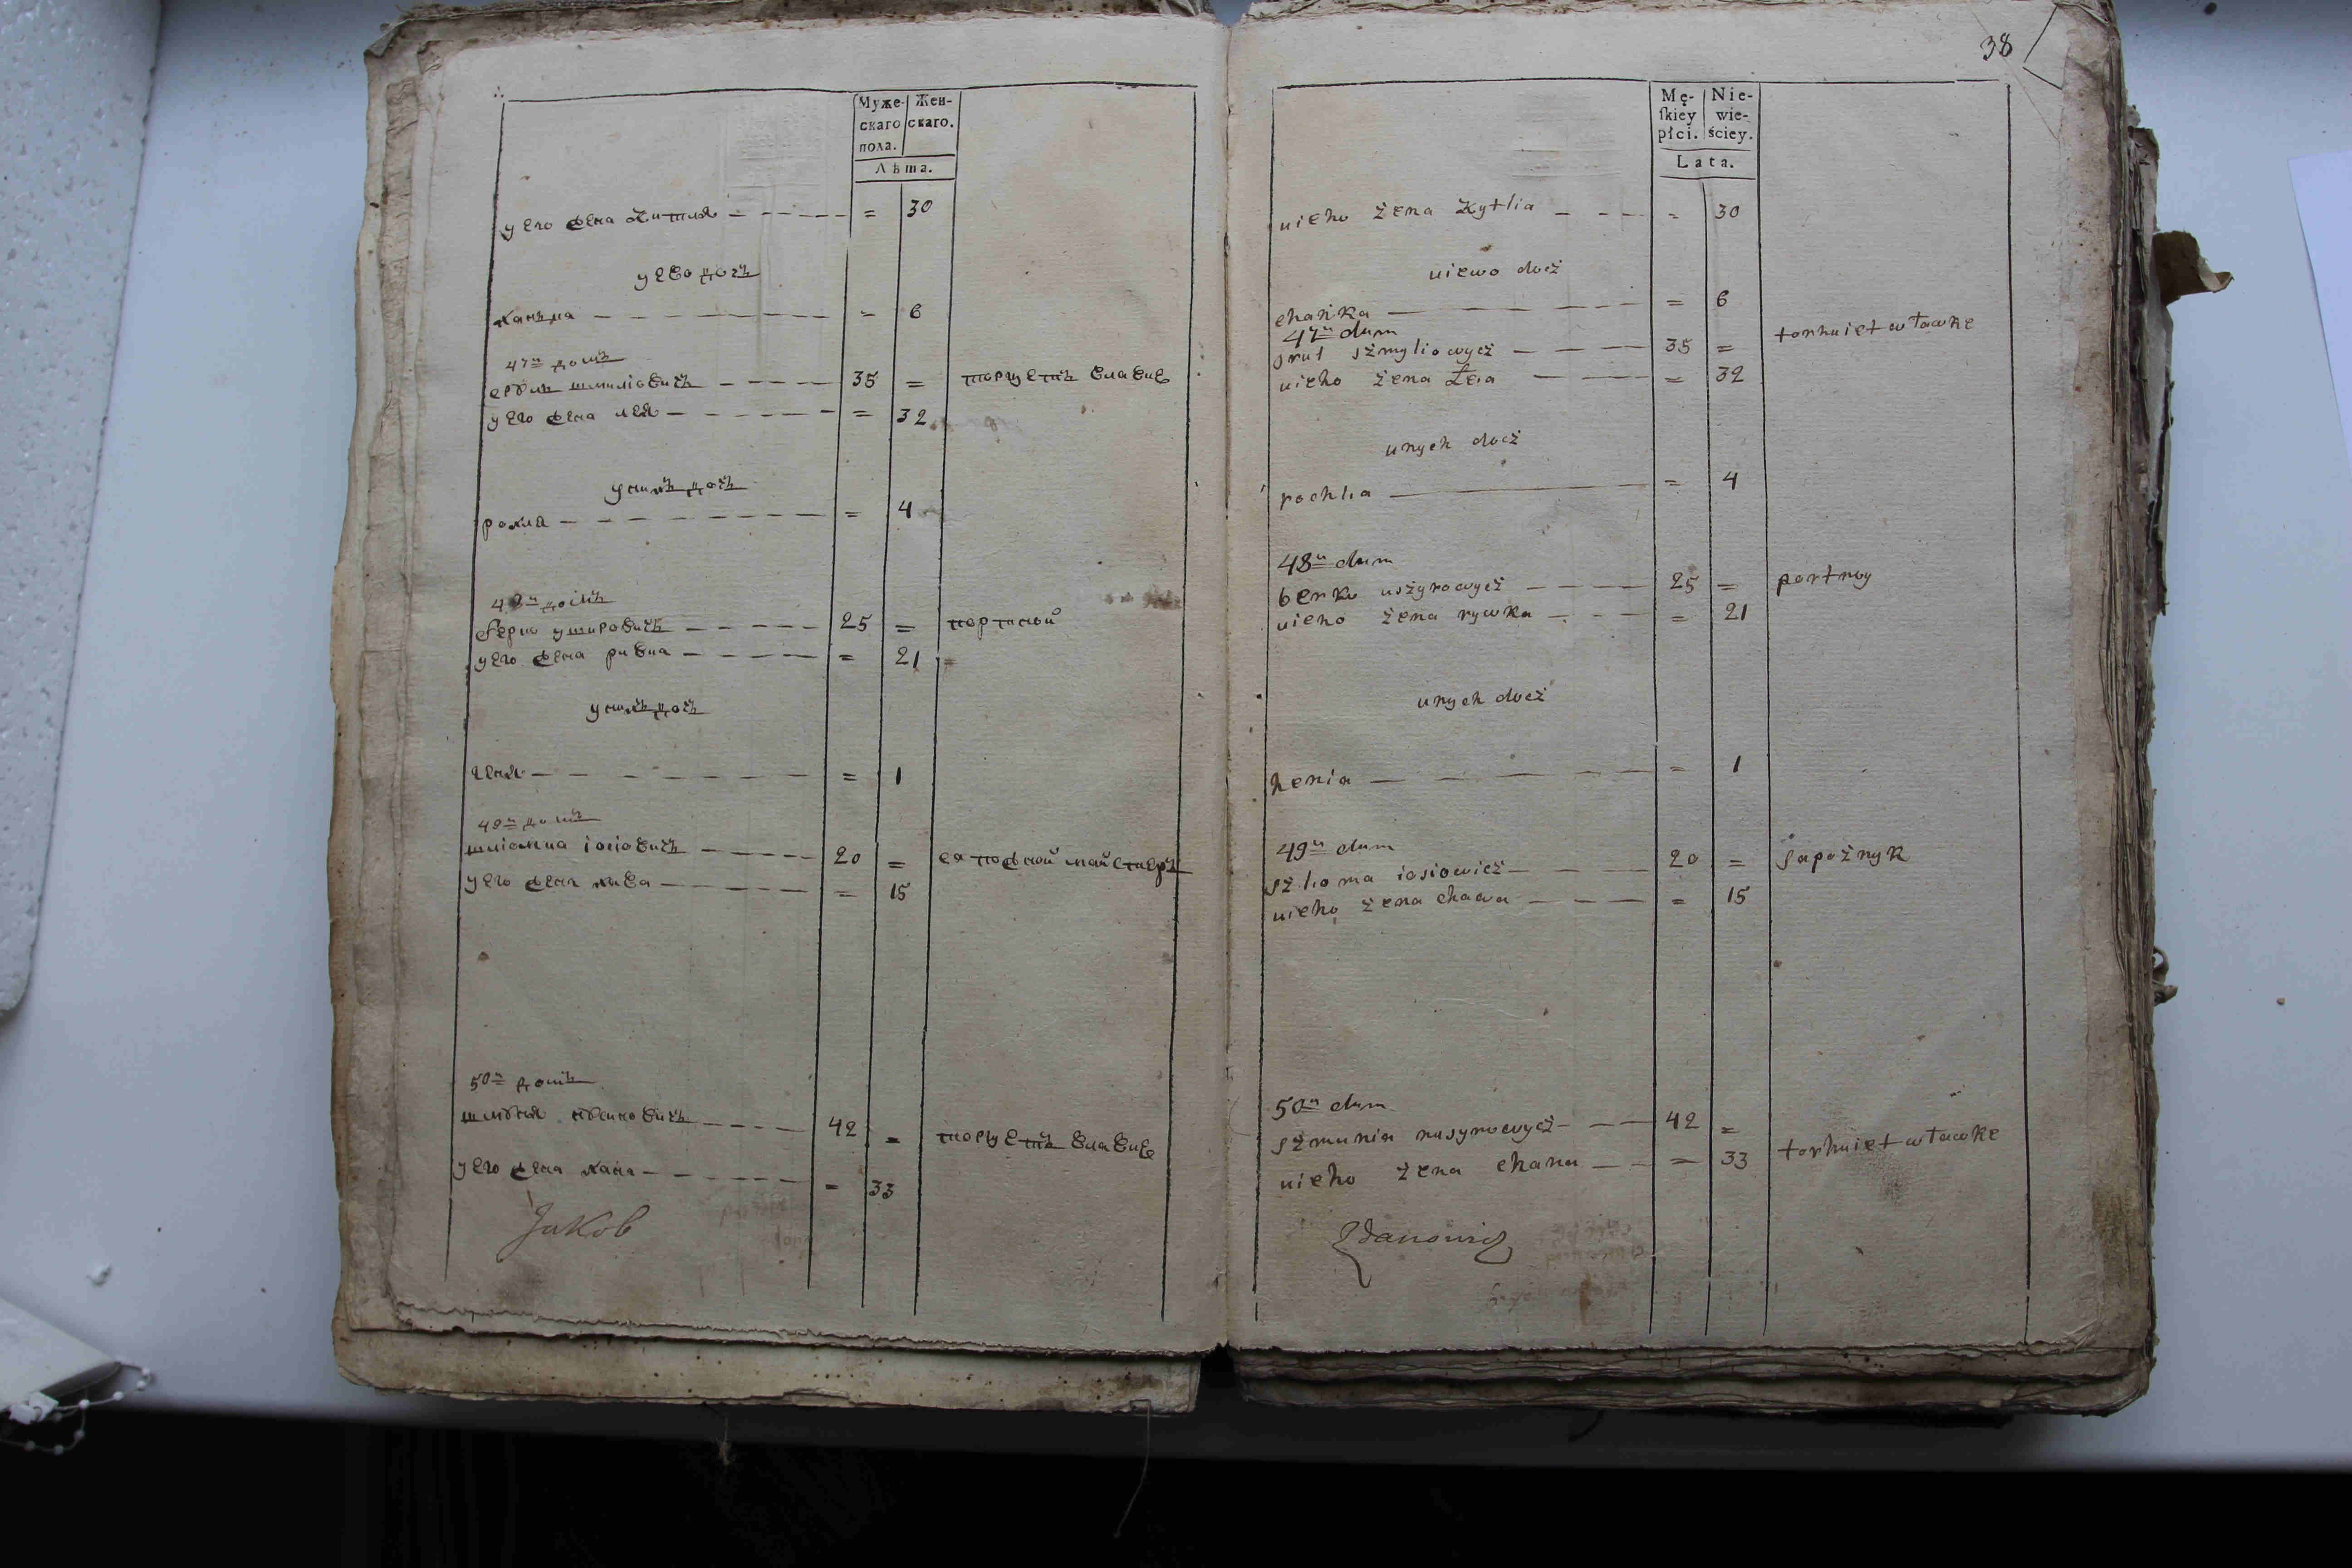 Муже- Жен-
скаго скаго.
пола.
Лѣта.
у его жена китля - - - - - = 30
у ево дочъ
ханька - - - - - - - = 6
47й домъ
сруль шмиліовичъ - - - - 35 = торгуетъ влавке
у его жена лея - - - - - = 32
унихъ дочъ
рохля - - - - - - - = 4
48й домъ
берко ушировичъ - - - - - 25 = портной
у его жена ривка - - - - - = 21
унихъ дочъ
геня - - - - - - - = 1
49й домъ
шліомка іосіовичъ - - - - 20 = сапожной майстеръ
у его жена хава - - - - - = 15
50й домъ
шмуня - - - - 42 = торгуетъ влавке
у его жена хана - - - - - = 33
Jakob
38
Mę- Nie-
ſkiey wie-
płci. ściey.
Lata.
uieho żena Kytlia - - - - = 30
uiewo docż
chańka - - - - - = 6
47n dum
srul szmyliowycż - - - 35 = torhuiet w ławke
uieho żena Leia - - - = 32
unych docż
rochlia - - - = 4
48n dum
berko uszyrowycż - - - 25 = portnoy
uieho żena rywka - - - - = 21
unych docż
henia - - - - - = 1
49n dum
szlioma iosiowicż - - - 20 = sapożnyk
uieho żena chawa - - - - = 15
50n dum
szmunia nusynowycż - - - 42 = torhuiet w ławke
uieho żena chana - - - = 33
Zdanowicz